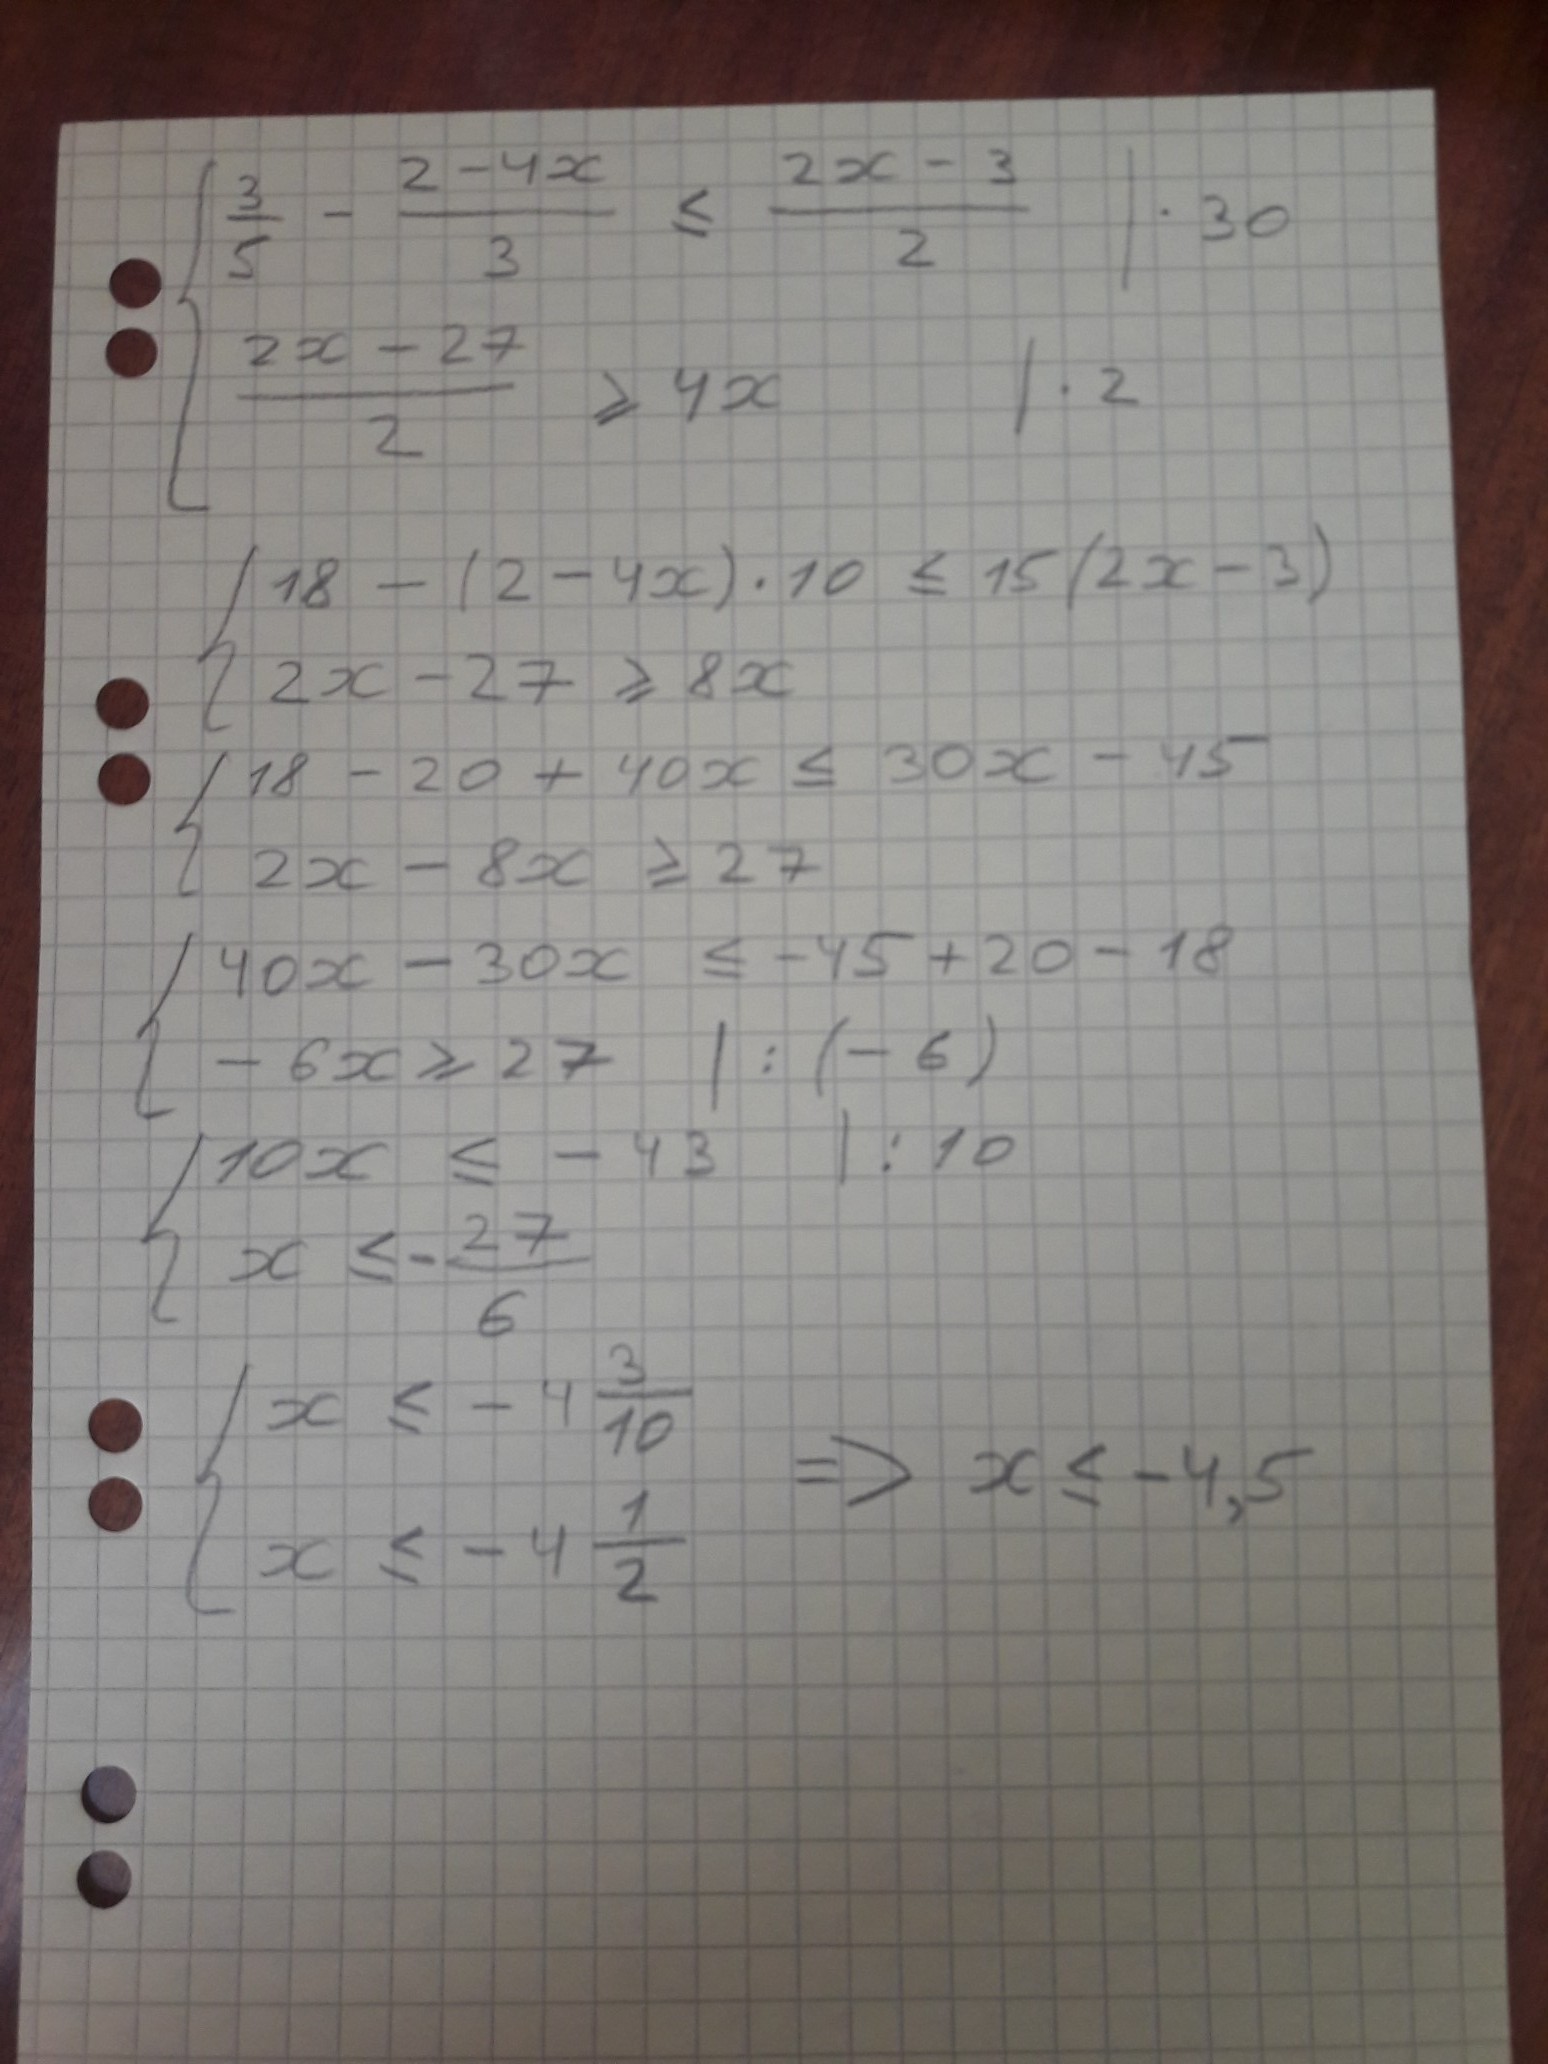 3/5 - (2-4x)/3 ≤ (2x-3)/2 | · 30
(2x-27)/2 ⩾ 4x | · 2
18 - (2-4x) · 10 ≤ 15(2x-3)
2x - 27 ⩾ 8x
18 - 20 + 40x ≤ 30x - 45
2x - 8x ⩾ 27
40x - 30x ≤ -45 + 20 - 18
- 6x ⩾ 27 | : (-6)
10x ≤ - 43 | : 10
x ≤ - 27/6
x ≤ - 4 3/10
=> x ≤ -4,5
x ≤ - 4 1/2